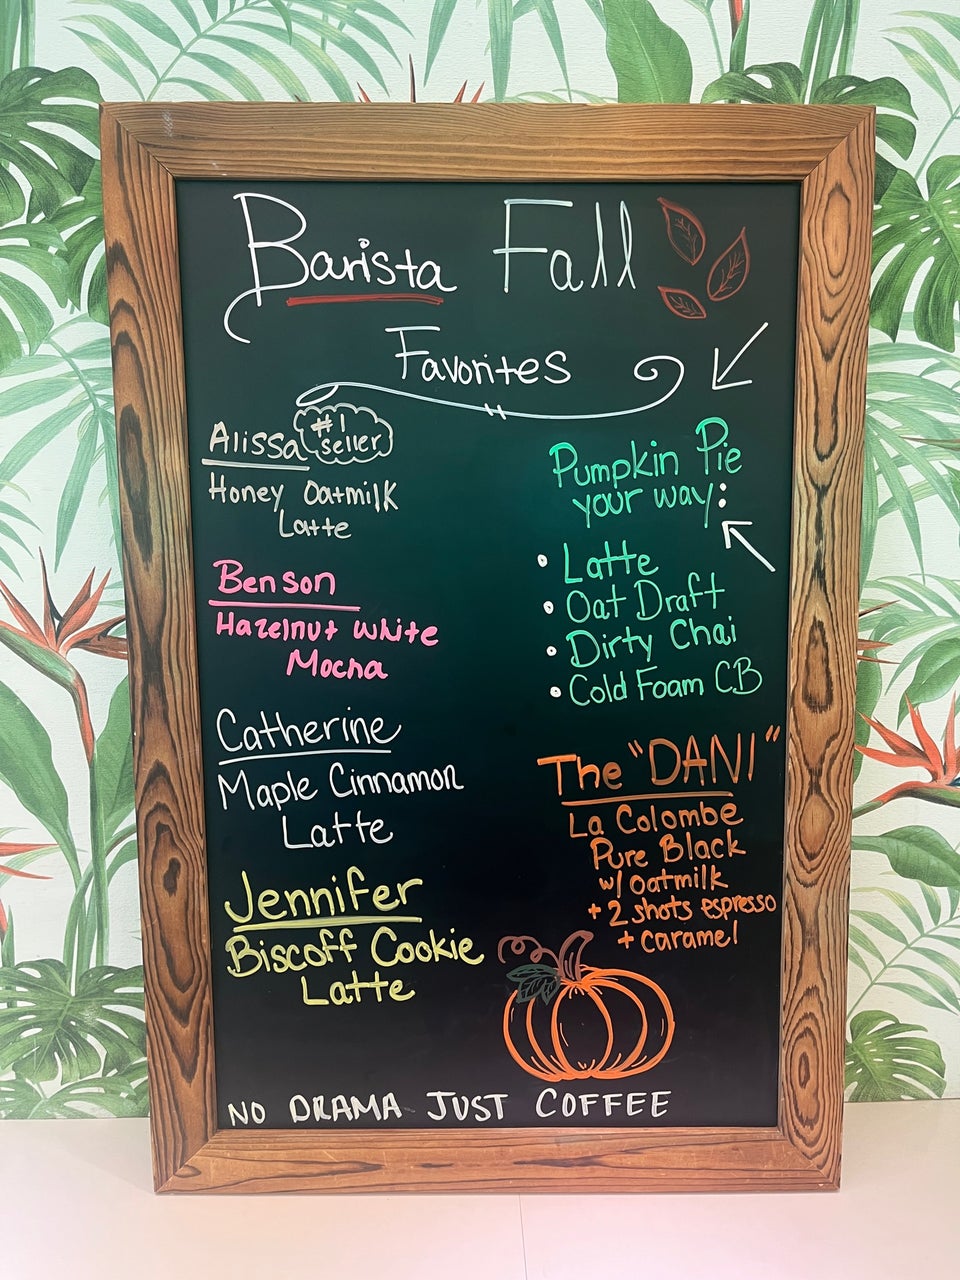 Barista Fall
Favorites
Alissa
#1
seller
Honey Oatmilk
Latte
Benson
Hazelnut White
Mocha
Catherine
Maple Cinnamon
Latte
Jennifer
Biscoff Cookie
Latte
Pumpkin Pie
your way:
• Latte
• Oat Draft
• Dirty Chai
• Cold Foam CB
The "DANI"
La Colombe
Pure Black
w/ oatmilk
+ 2 shots espresso
+ caramel
NO DRAMA JUST COFFEE